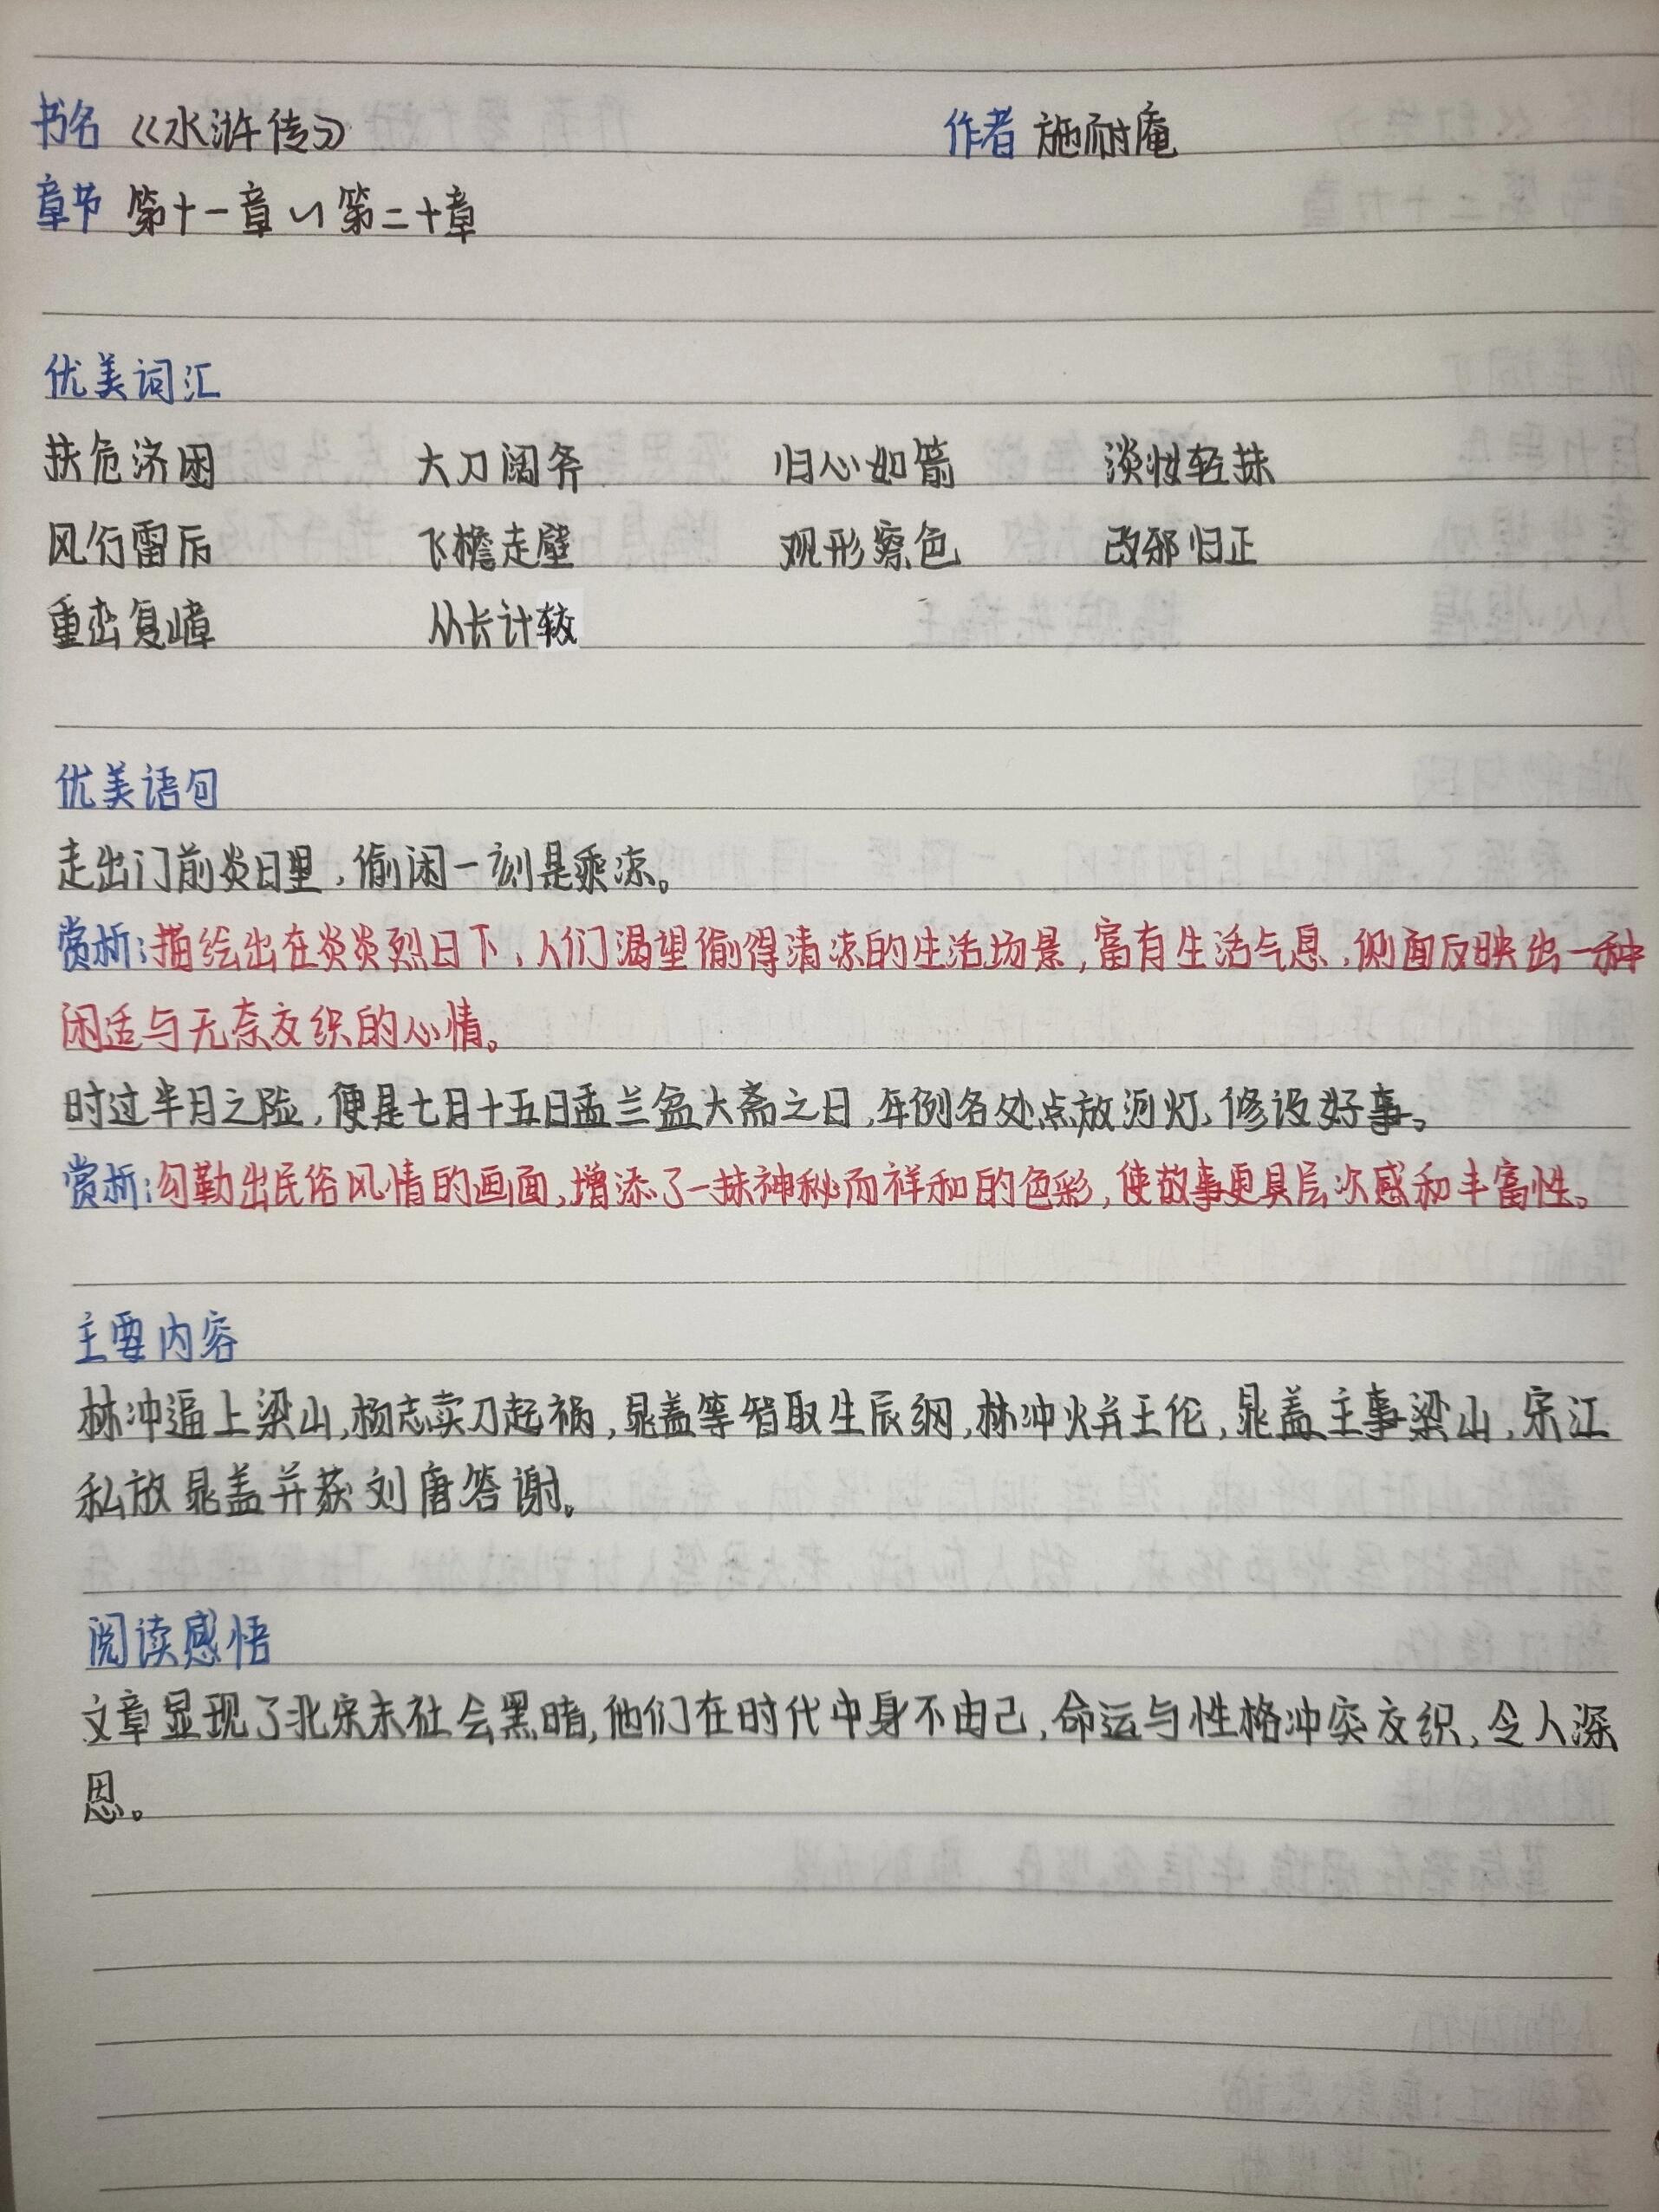 书名 《水浒传》 作者 施耐庵
章节 第十一章~第二十章
优美词汇
扶危济困 大刀阔斧 归心如箭 淡妆轻抹
风行雷厉 飞檐走壁 观形察色 改邪归正
重峦复嶂 从长计较
优美语句
走出门前炎日里，偷闲一刻是乘凉。
赏析：描绘出在炎炎烈日下，人们渴望偷得清凉的生活场景，富有生活气息，侧面反映出一种
闲适与无奈交织的心情。
时过半月之险，便是七月十五日盂兰盆大斋之日，年例各处点放河灯，修设好事。
赏析：勾勒出民俗风情的画面，增添了一抹神秘而祥和的色彩，使故事更具层次感和丰富性。
主要内容
林冲逼上梁山，杨志卖刀起祸，晁盖等智取生辰纲，林冲火并王伦，晁盖主事梁山，宋江
私放晁盖并获刘唐答谢。
阅读感悟
文章显现了北宋末社会黑暗，他们在时代中身不由己，命运与性格冲突交织，令人深
恩。